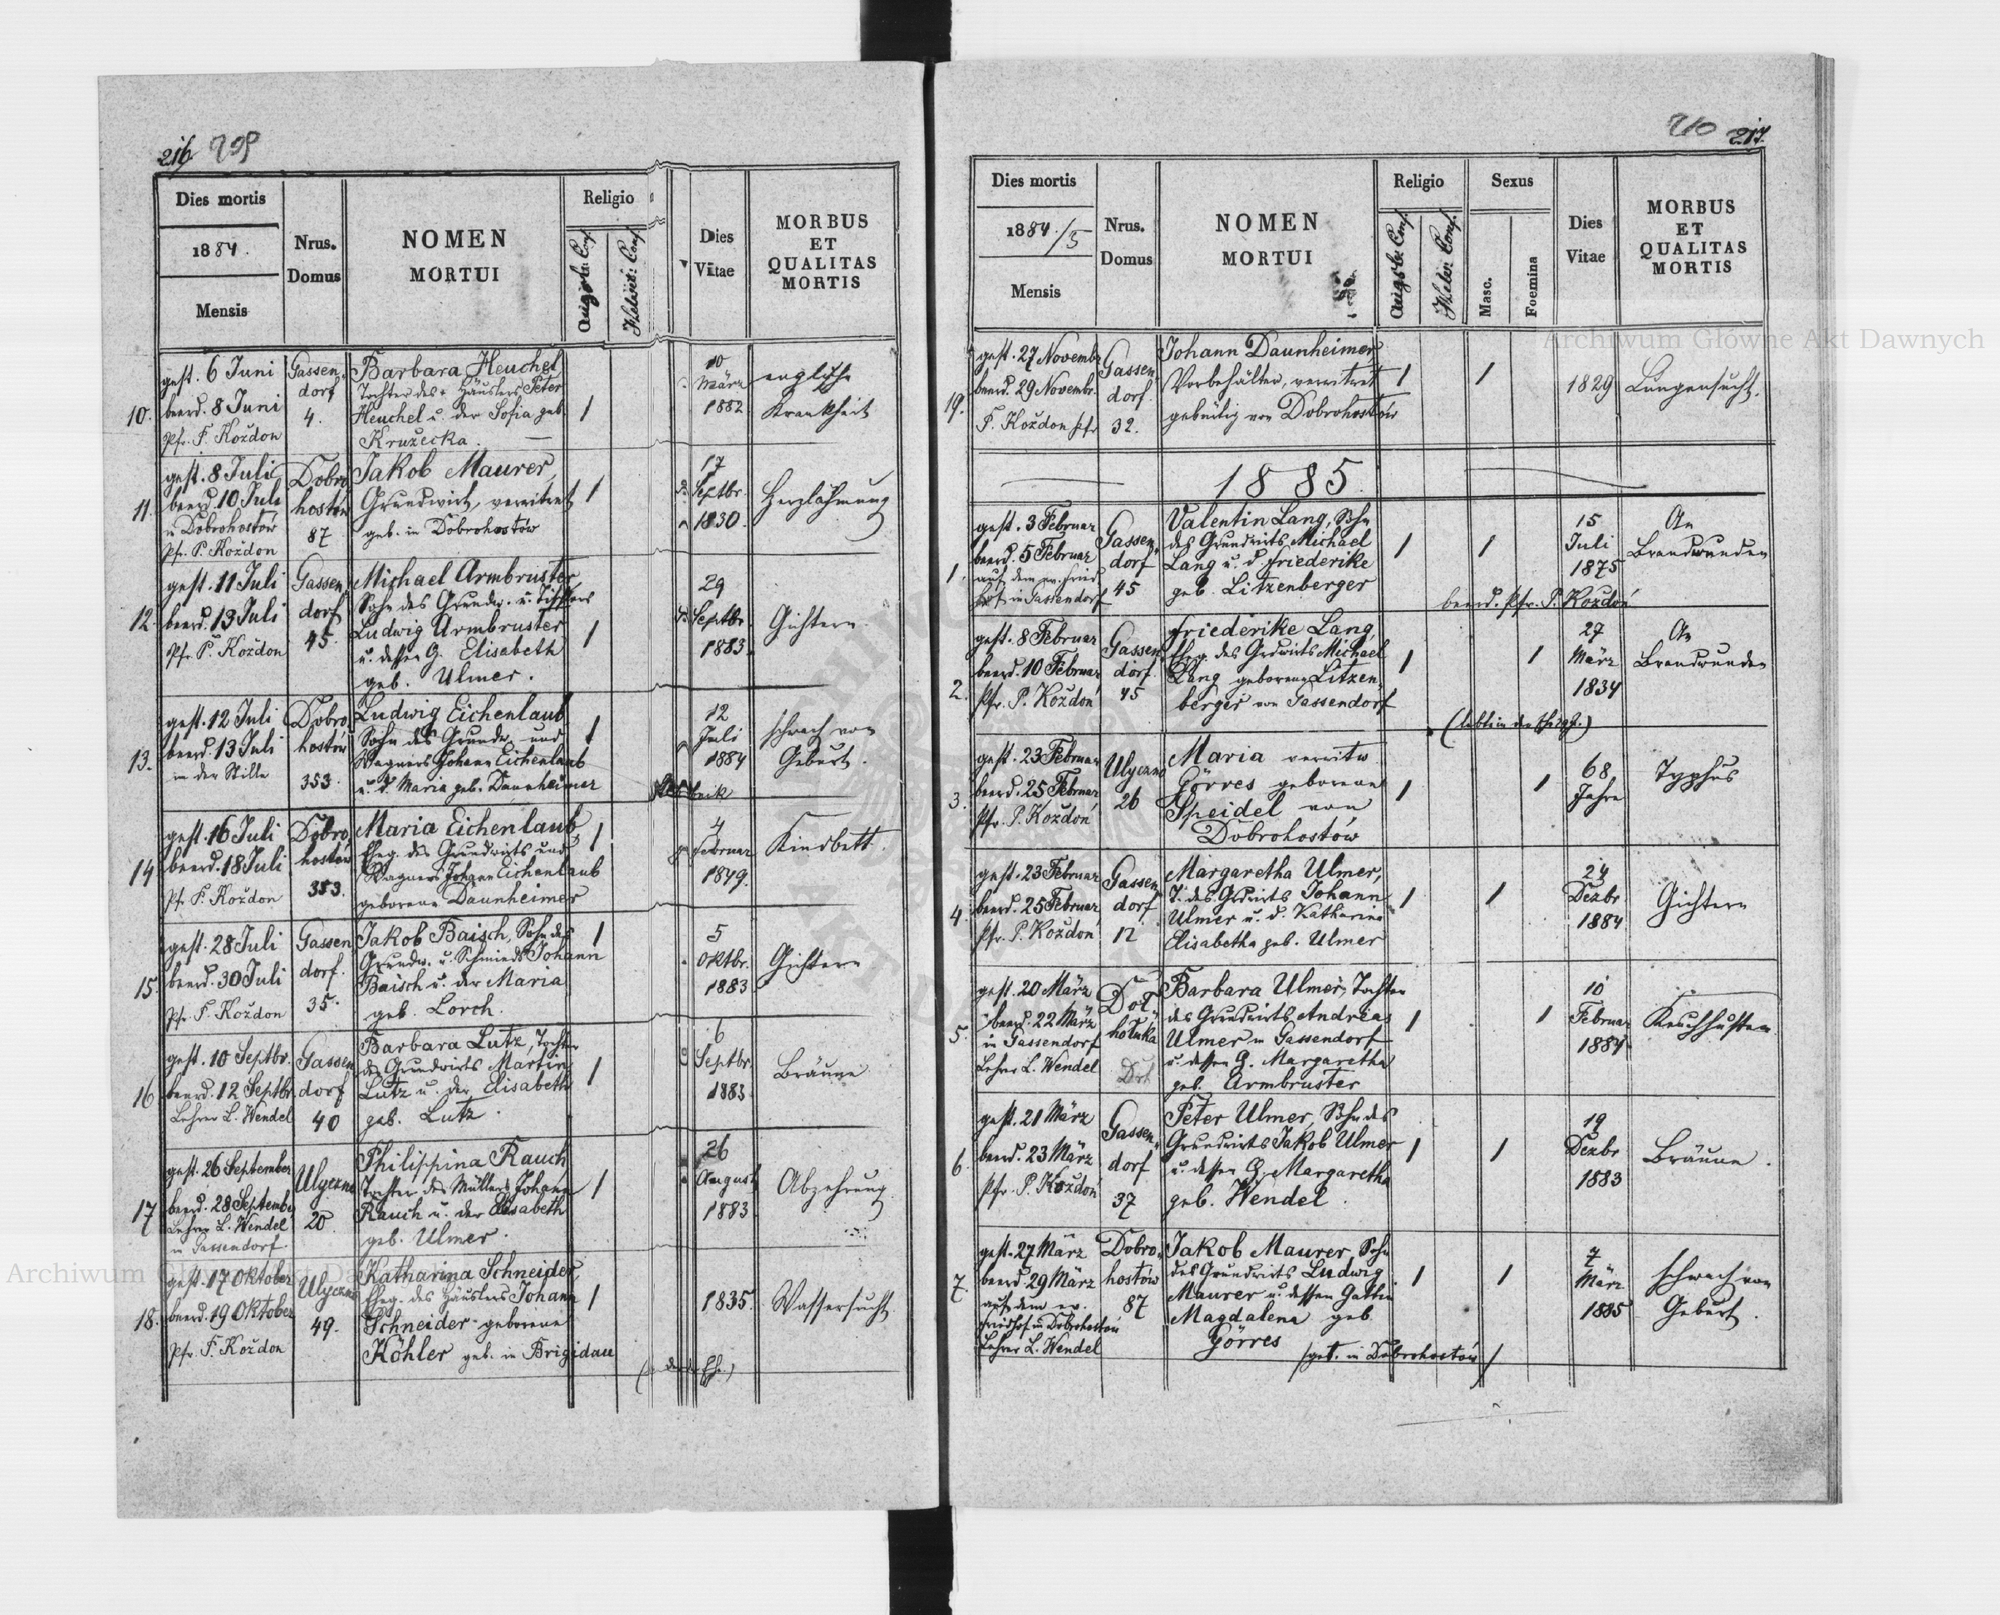 216 209
Dies mortis
1884.
Mensis
Nrus.
Domus
NOMEN
MORTUI
Religio
Augsb. Conf.
Helvet. Conf.
Dies
Vitae
MORBUS
ET
QUALITAS
MORTIS
10.
gest. 6 Juni
beerd. 8 Juni
Pfr. P. Koždon
Gassen-
dorf
4.
Barbara Heuchel
Tochter des Häuslers Peter
Heuchel u. der Sofia geb.
Kružecka.
1
10
März
1882
englische
Krankheit
11.
gest. 8 Juli
beerd. 10 Juli
in Dobrohostów
Pfr. P. Koždon
Dobro
hostów
87
Jakob Maurer,
Grundwirt, verwitwet
geb. in Dobrohostów
1
17
Septbr.
1830.
Herzlähmung
12.
gest. 11 Juli
beerd. 13 Juli
Pfr. P. Koždon
Gassen-
dorf
45.
Michael Armbruster,
Sohn des Grundw. u. Tischlers
Ludwig Armbruster
u. dessen G. Elisabeth
geb. Ulmer.
1
29
Septbr.
1883.
Gichtern
13.
gest. 12 Juli
beerd. 13 Juli
in der Stille
Dobro
hostów
353.
Ludwig Eichenlaub
Sohn des Grundw. und
Wagners Johann Eichenlaub
u. d. Maria geb. Daunheimer
1
12
Juli
1884
schwach von
Geburt.
14
gest. 16 Juli
beerd. 18 Juli
Pfr. P. Koždon
Dobro
hostów
353.
Maria Eichenlaub,
Eheg. des Grundwirts und
Wagners Johann Eichenlaub
geborene Daunheimer
1
4
Februar
1849.
Kindbett.
15.
gest. 28 Juli
beerd. 30 Juli
Pfr. P. Koždon
Gassen
dorf.
35.
Jakob Baisch, Sohn des
Grundw. u. Schmieds Johann
Baisch u. der Maria
geb. Lorch.
1
5
Oktbr.
1883
Gichtern
16
gest. 10 Septbr.
beerd. 12 Septbr
Lehrer L. Wendel
Gassen
dorf
40
Barbara Lutz, Tochter
des Grundwirts Martin
Lutz u. der Elisabeth
geb. Lutz.
1
6
Septbr.
1883
Bräune
17
gest. 26 September
beerd. 28 September
Lehrer L. Wendel
in Gassendorf.
Ulyczno
20
Philippina Rauch
Tochter des Müllers Johann
Rauch u. der Elisabeth
geb. Ulmer.
1
26
August
1883
Abzehrung
18.
gest. 17 Oktober
beerd. 19 Oktober
Pfr. P. Koždon
Ulyczno
49.
Katharina Schneider,
Eheg. des Häuslers Johann
Schneider geborene
Köhler geb. in Brigidau
1
1835.
Wassersucht
210 217.
Dies mortis
1884./5
Mensis
Nrus.
Domus
NOMEN
MORTUI
Religio
Augsb. Conf.
Helv. Conf.
Sexus
Masc.
Foemina
Dies
Vitae
MORBUS
ET
QUALITAS
MORTIS
19.
gest. 27 Novembr
beerd. 29 Novembr.
P. Koždon pfr
Gassen
dorf.
32.
Johann Daunheimer
Vorbehälter, verwitwet
gebürtig von Dobrohostów
1
1
1829
Lungensucht.
1885.
1.
gest. 3 Februar
beerd. 5 Februar
auf dem ev. Fried-
hof in Gassendorf
Gassen-
dorf
45
Valentin Lang, Sohn
des Grundwirts Michael
Lang u. d. Friederike
geb. Litzenberger
1
1
15
Juli
1875
An
Brandwunden
beerd. Pfr. P. Koždon
2.
gest. 8 Februar
beerd. 10 Februar
Pfr. P. Koždon
Gassen
dorf.
45
Friederike Lang,
Eheg. des Grdwirts Michael
Lang geborene Litzen-
berger von Gassendorf
1
1
27
März
1834
An
Brandwunden
3.
gest. 23 Februar
beerd. 25 Februar
Pfr. P. Koždon
Ulyczno
26
Maria verwitw.
Görres geborene
Speidel von
Dobrohostów
1
1
68
Jahre
Typhus
4.
gest. 23 Februar
beerd. 25 Februar
Pfr. P. Koždon
Gassen
dorf
12
Margaretha Ulmer,
T. des Grdwirts Johann
Ulmer u. d. Katharina
Elisabetha geb. Ulmer
1
1
24
Dezbr
1884
Gichtern
5.
gest. 20 März
beerd. 22 März
in Gassendorf
Lehrer L. Wendel
Dol
holuka
Barbara Ulmer, Tochter
des Grundwirts Andreas
Ulmer in Gassendorf
u. dessen G. Margaretha
geb. Armbruster
1
1
10
Februar
1884
Keuchhusten
6.
gest. 21 März
beerd. 23 März
Pfr. P. Koždon
Gassen-
dorf
37
Peter Ulmer, Sohn des
Grundwirts Jakob Ulmer
u. dessen G. Margaretha
geb. Wendel.
1
1
19
Dezbr
1883
Bräune.
7.
gest. 27 März
beerd. 29 März
auf dem ev.
Friedhof in Dobrohostów
Lehrer L. Wendel
Dobro-
hostów
87
Jakob Maurer, Sohn
des Grundwirts Ludwig
Maurer u. dessen Gattin
Magdalena geb.
Görres
1
1
7
März
1885
schwach von
Geburt.
/get. in Dobrohostów/
Archiwum Główne Akt Dawnych
Archiwum Główne Akt Dawnych